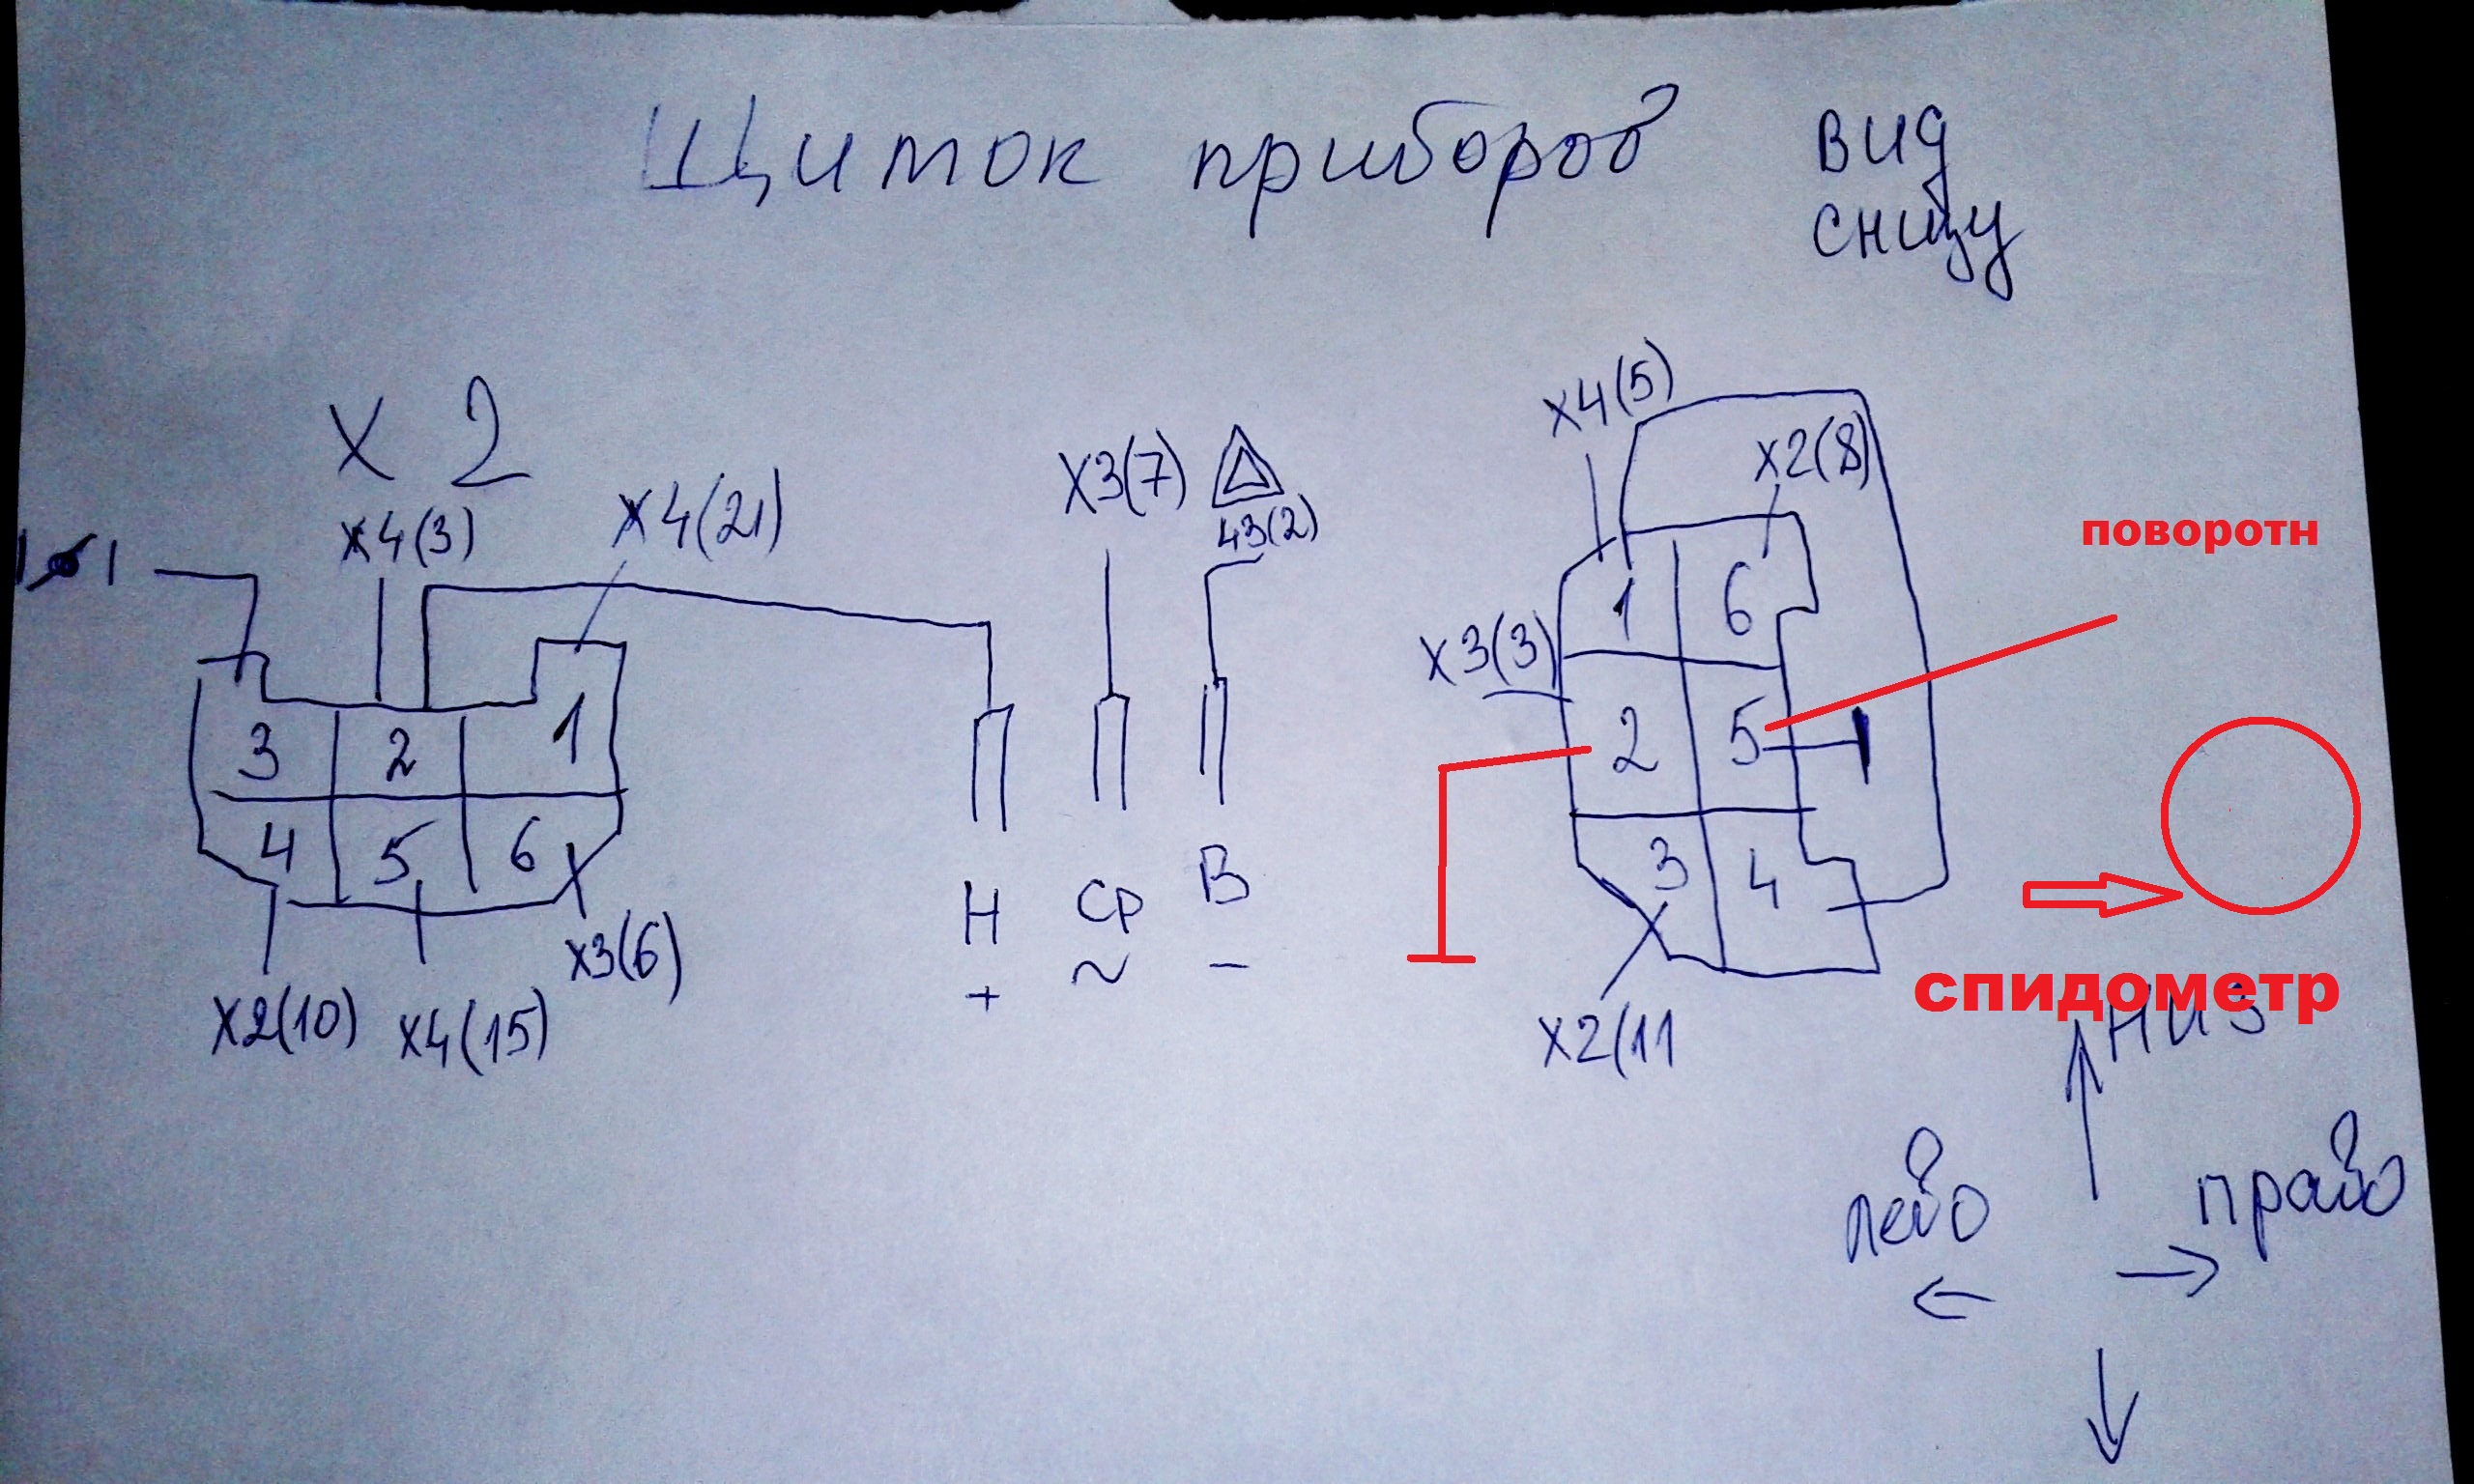 Щиток приборов
вид
снизу
X 2
X4(3)
X4(21)
X3(7)
43(2)
X4(5)
X2(8)
поворотн
X3(3)
3 2 1
4 5 6
X2(10)
X4(15)
X3(6)
Н Ср В
+ ~ −
1 6
2 5
3 4
X2(11
спидометр
низ
лево
право